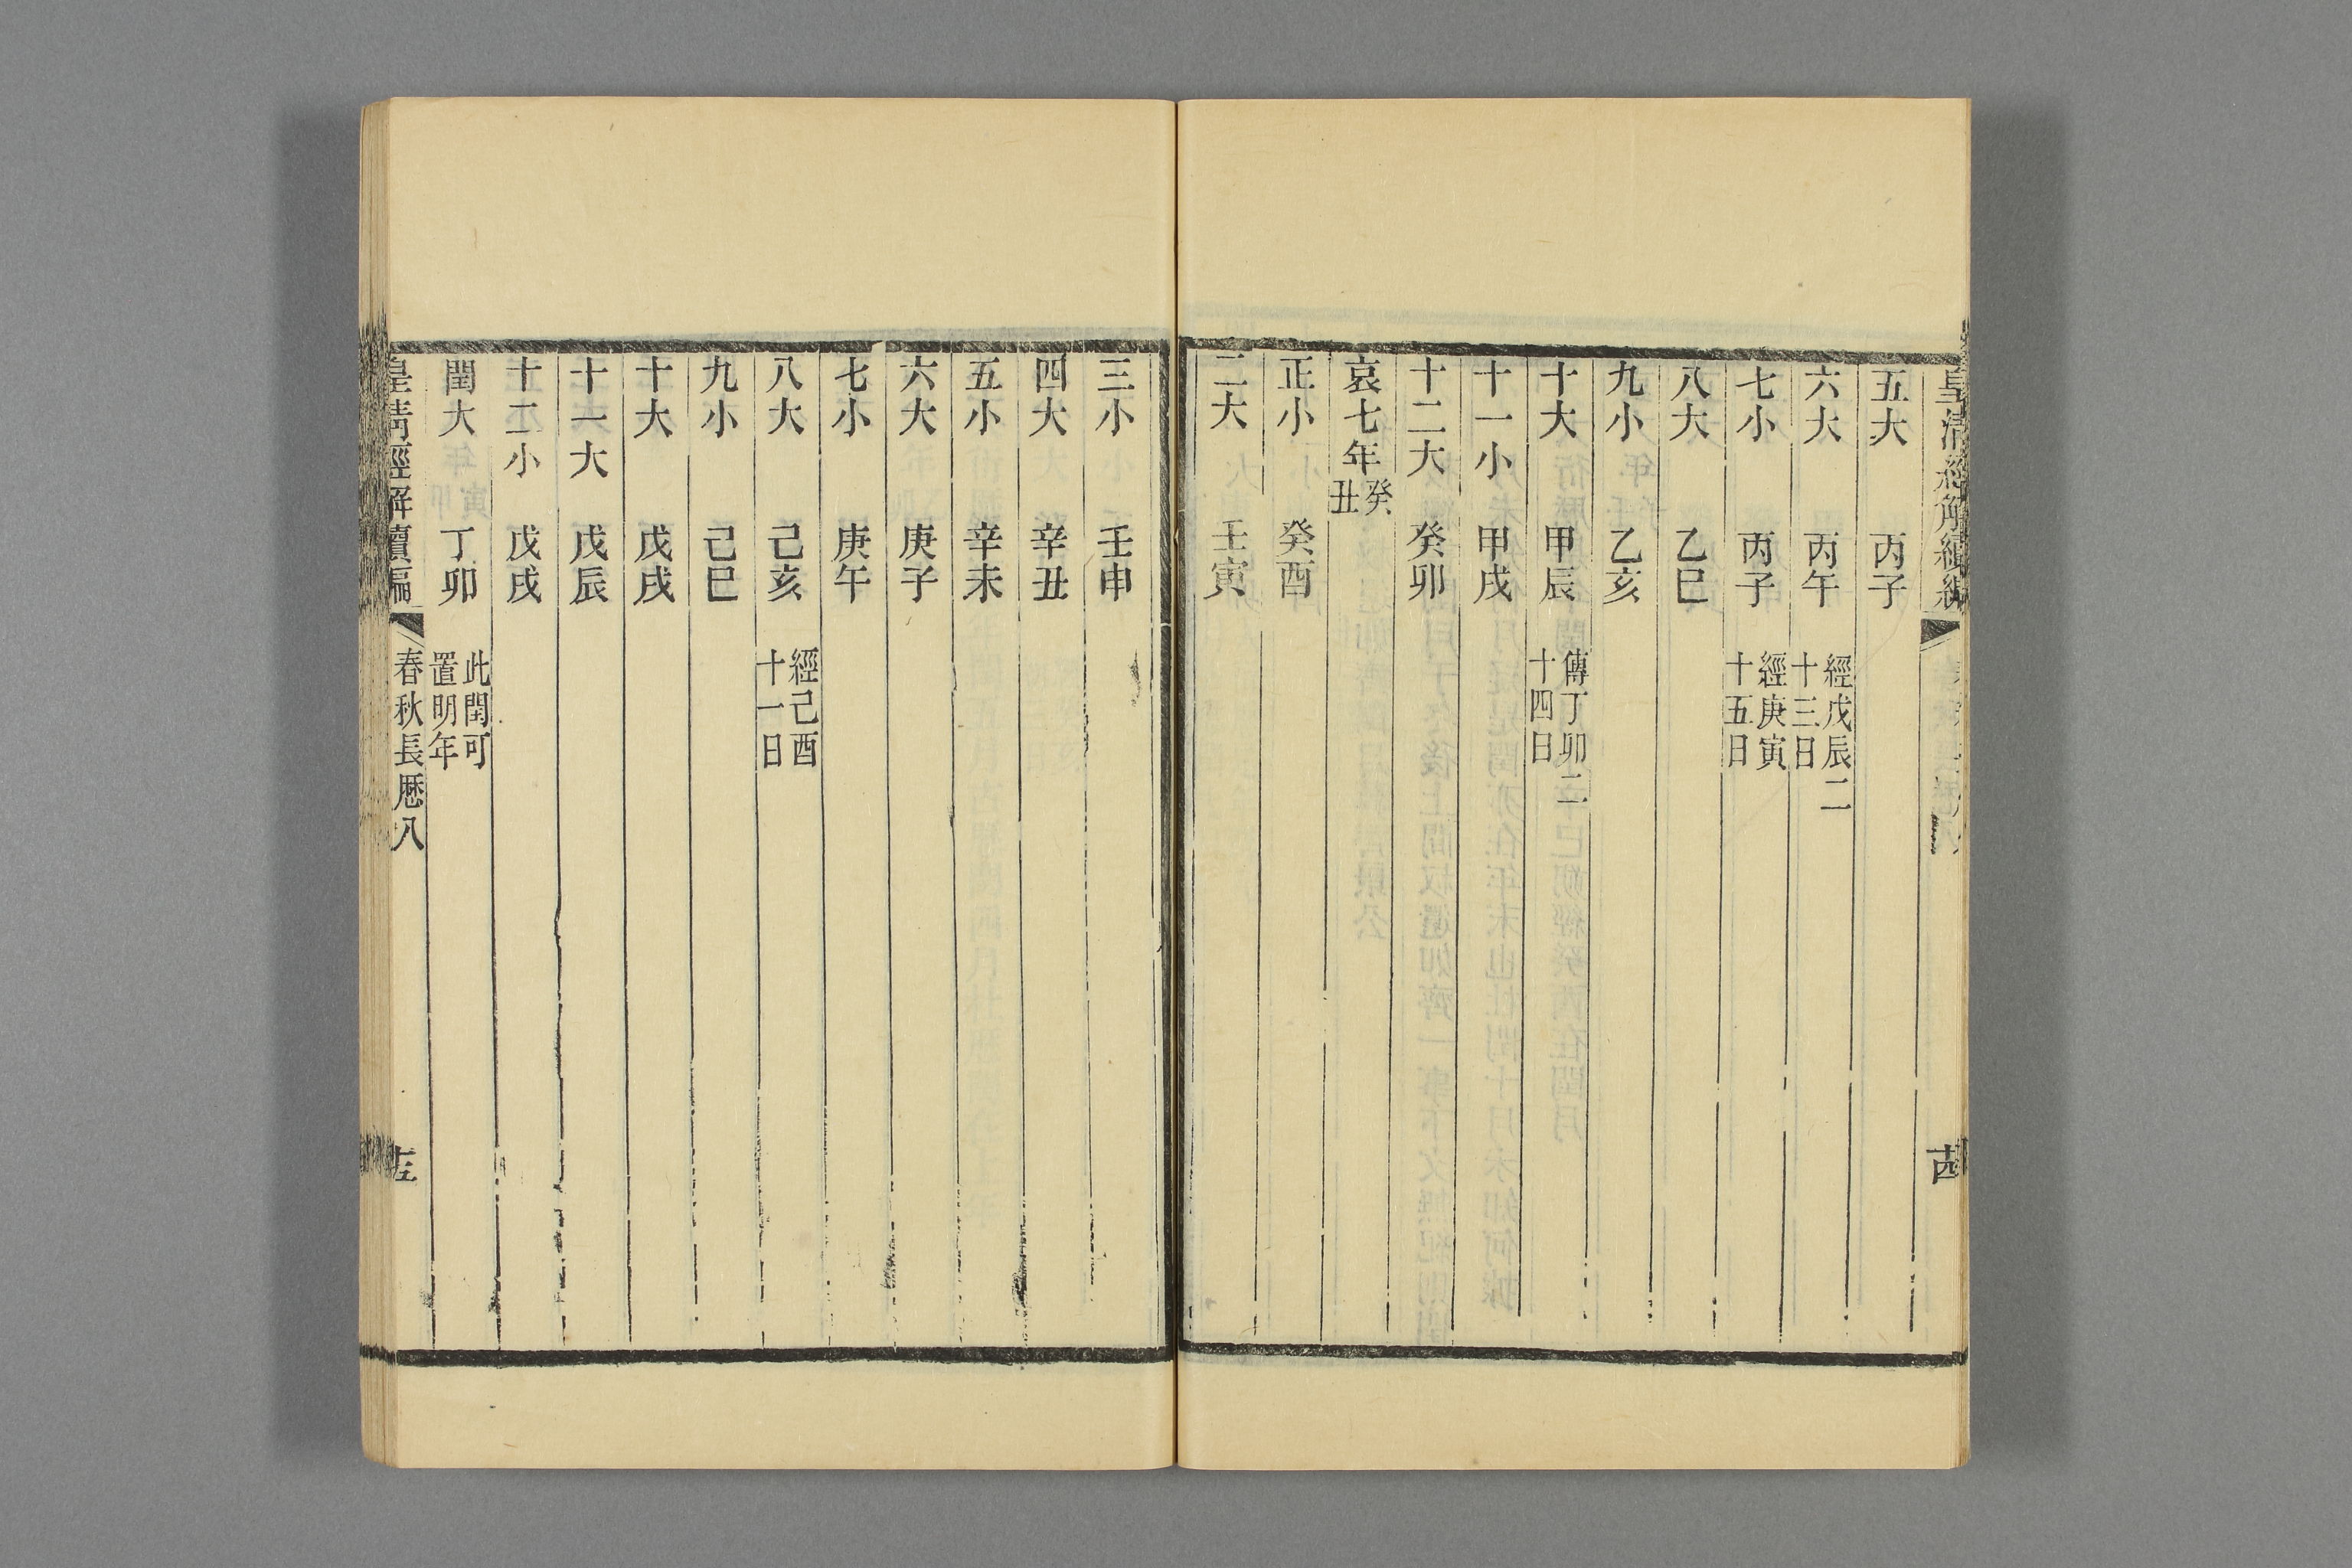 五大　丙子
六大　丙午　經戊辰二十三日
七小　丙子　經庚寅十五日
八大　乙巳
九小　乙亥
十大　甲辰　傳丁卯二十四日
十一小　甲戌
十二大　癸卯
哀七年癸丑
正小　癸酉
二大　壬寅
三小　壬申
四大　辛丑
五小　辛未
六大　庚子
七小　庚午
八大　己亥　經己酉十一日
九小　己巳
十大　戊戌
十一大　戊辰
十二小　戊戌
閏大　丁卯　此閏可置明年
皇清經解續編　春秋長厯八